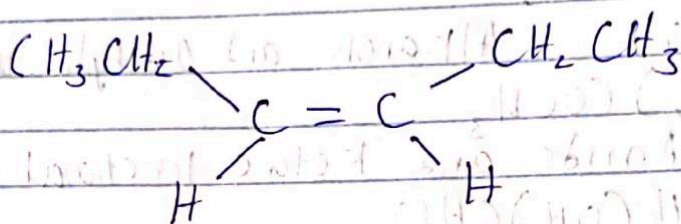 CH3 CH2 CH2 CH3
C = C
H H